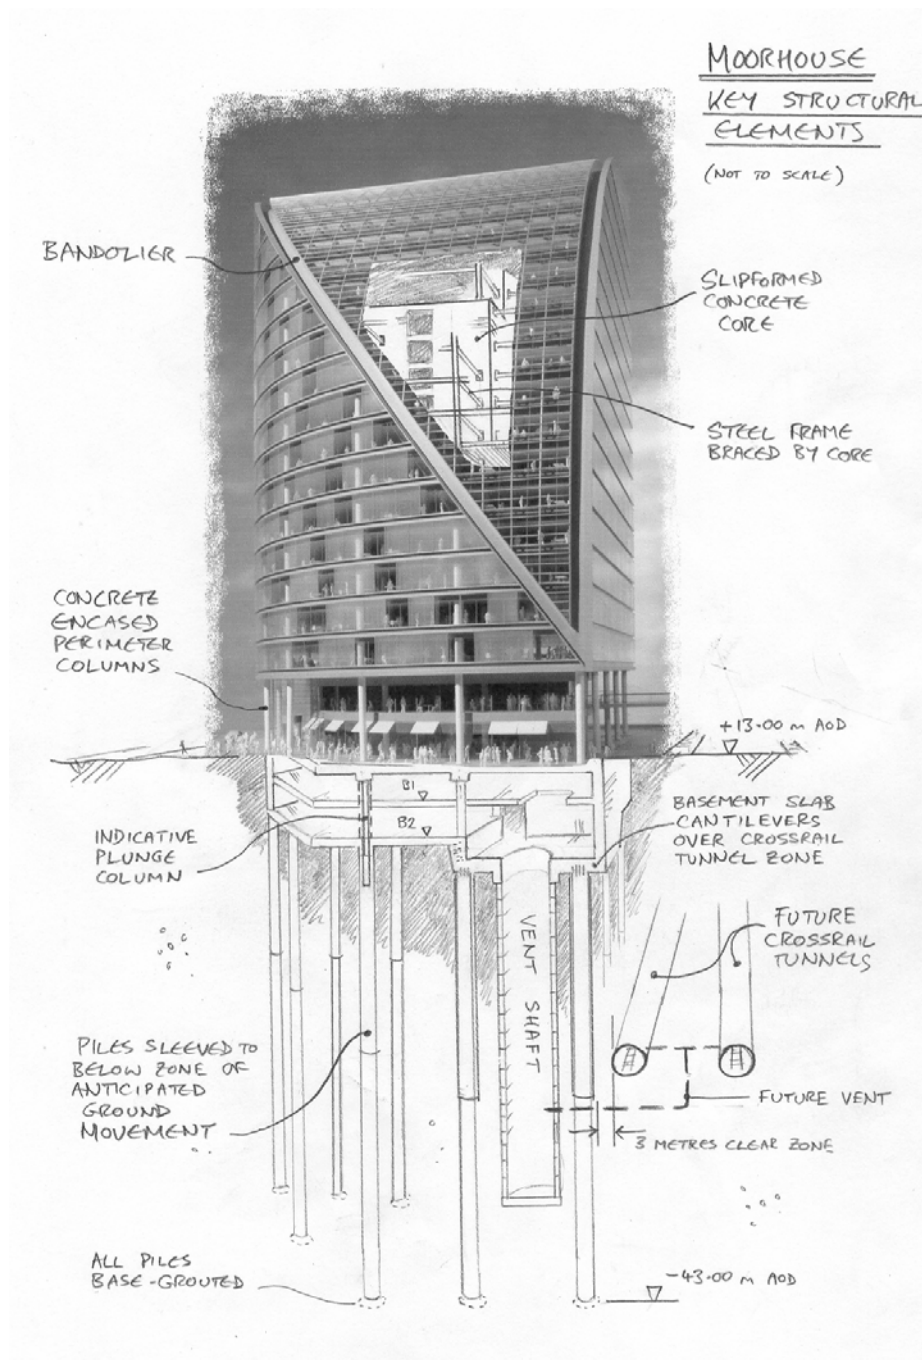 MOORHOUSE
KEY STRUCTURAL
ELEMENTS
(NOT TO SCALE)
BANDOLIER
SLIPFORMED
CONCRETE
CORE
STEEL FRAME
BRACED BY CORE
CONCRETE
ENCASED
PERIMETER
COLUMNS
+13.00 m AOD
B1
B2
INDICATIVE
PLUNGE
COLUMN
BASEMENT SLAB
CANTILEVERS
OVER CROSSRAIL
TUNNEL ZONE
VENT SHAFT
FUTURE
CROSSRAIL
TUNNELS
PILES SLEEVED TO
BELOW ZONE OF
ANTICIPATED
GROUND
MOVEMENT
FUTURE VENT
3 METRES CLEAR ZONE
ALL PILES
BASE-GROUTED
-43.00 m AOD